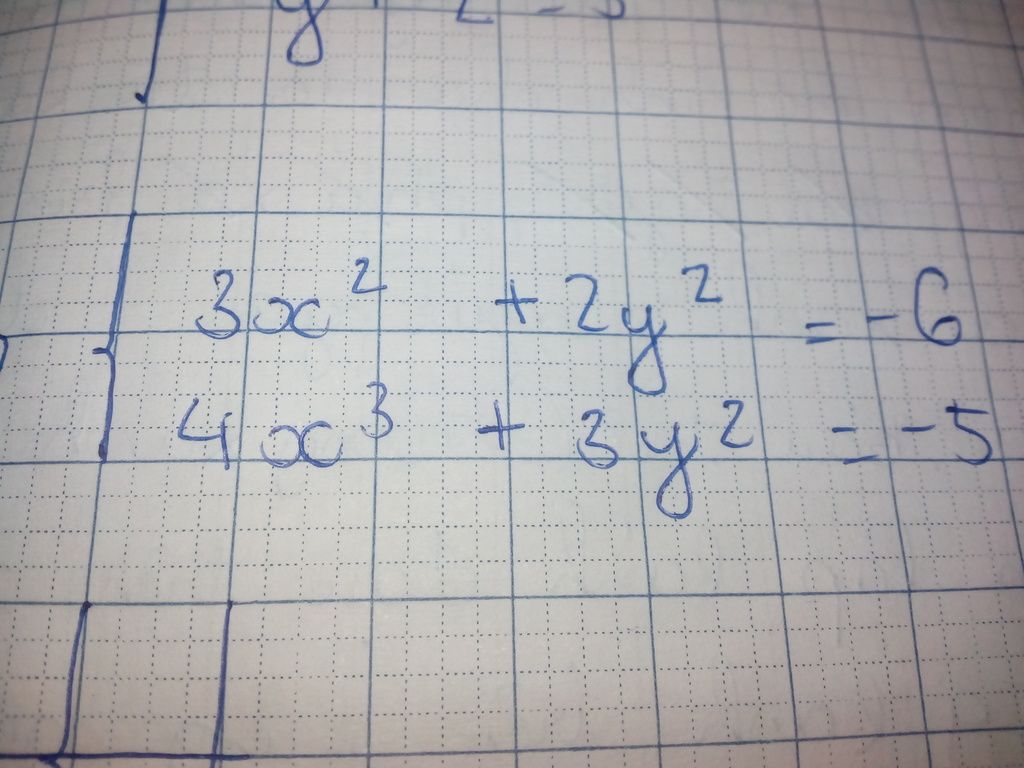 3x² + 2y² = -6
4x³ + 3y² = -5